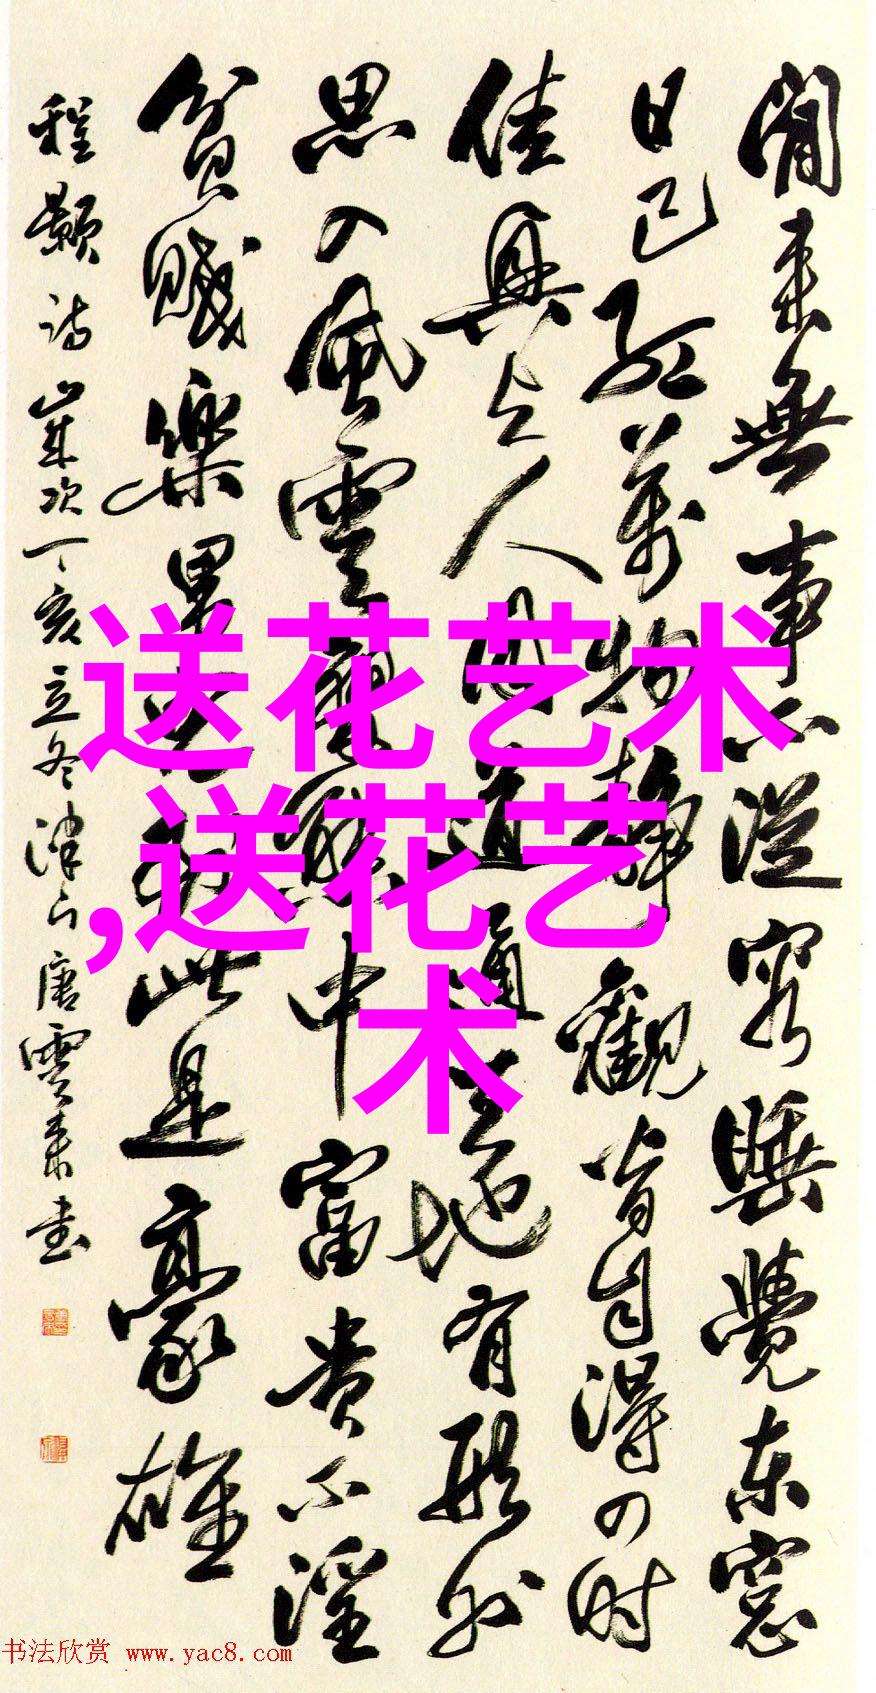 閒来無事不從容睡覺东窓
日已红万物静觀皆自得四时
佳興与人同道通天地有形外
思入風雲變態中富贵不淫
貧賤樂男儿到此是豪雄
程颢诗歲次丁亥立冬津门唐雲来书
送花艺术
,送花艺
术
书法欣赏 www.yac8.com